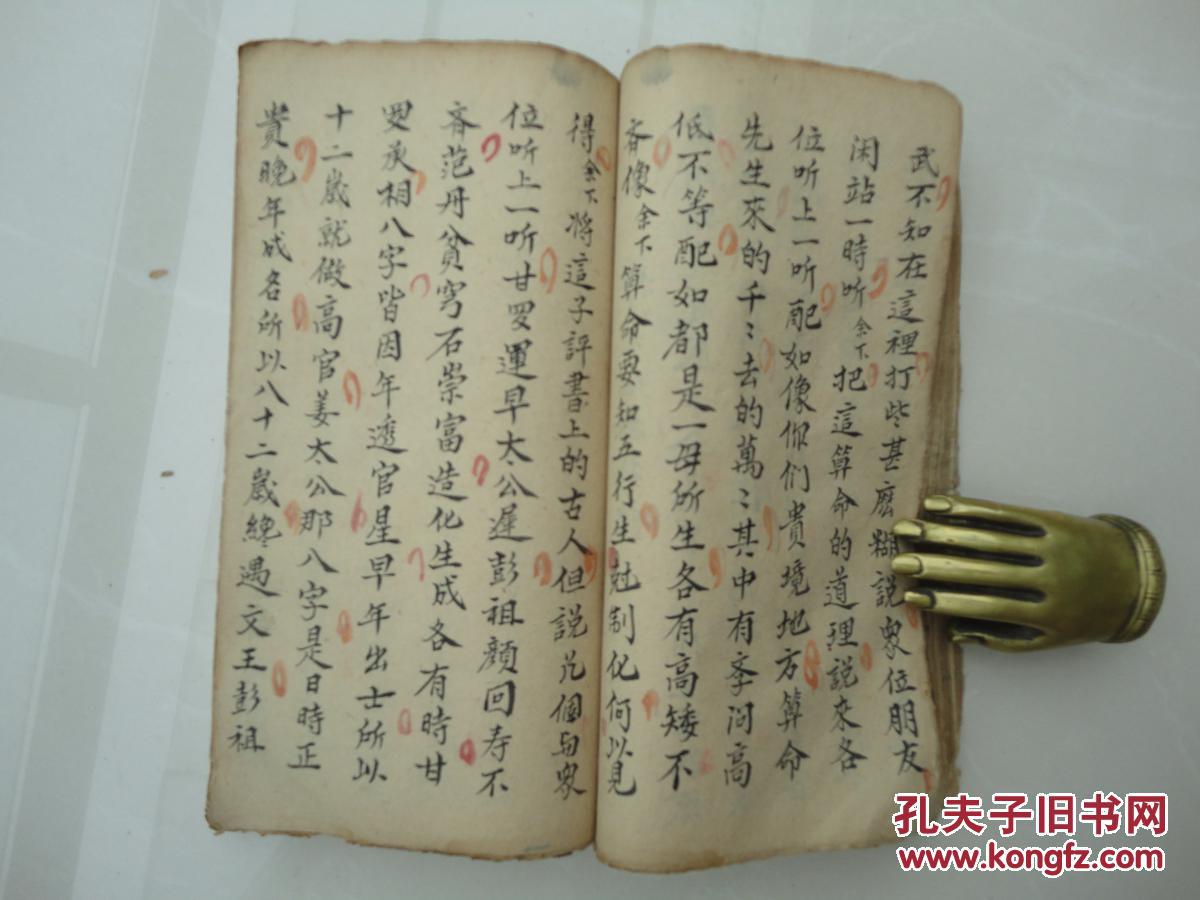 武不知在這裡打些甚麽糊說眾位朋友
闲站一時听余下把這算命的道理說來各
位听上一听配如像你们貴境地方算命
先生來的千〻去的萬〻其中有孝问高
低不等配如都是一母所生各有高矮不
斉像余下算命要知五行生尅制化何以見
得余下将這子評書上的古人但說凢個与眾
位听上一听甘罗運早太公遲彭祖顔回寿不
斉范丹貧穷石崇富造化生成各有時甘
罗丞相八字皆因年透官星早年出士所以
十二歲就做高官姜太公那八字是日時正
貴晚年成名所以八十二歲纔遇文王彭祖
孔夫子旧书网
www.kongfz.com